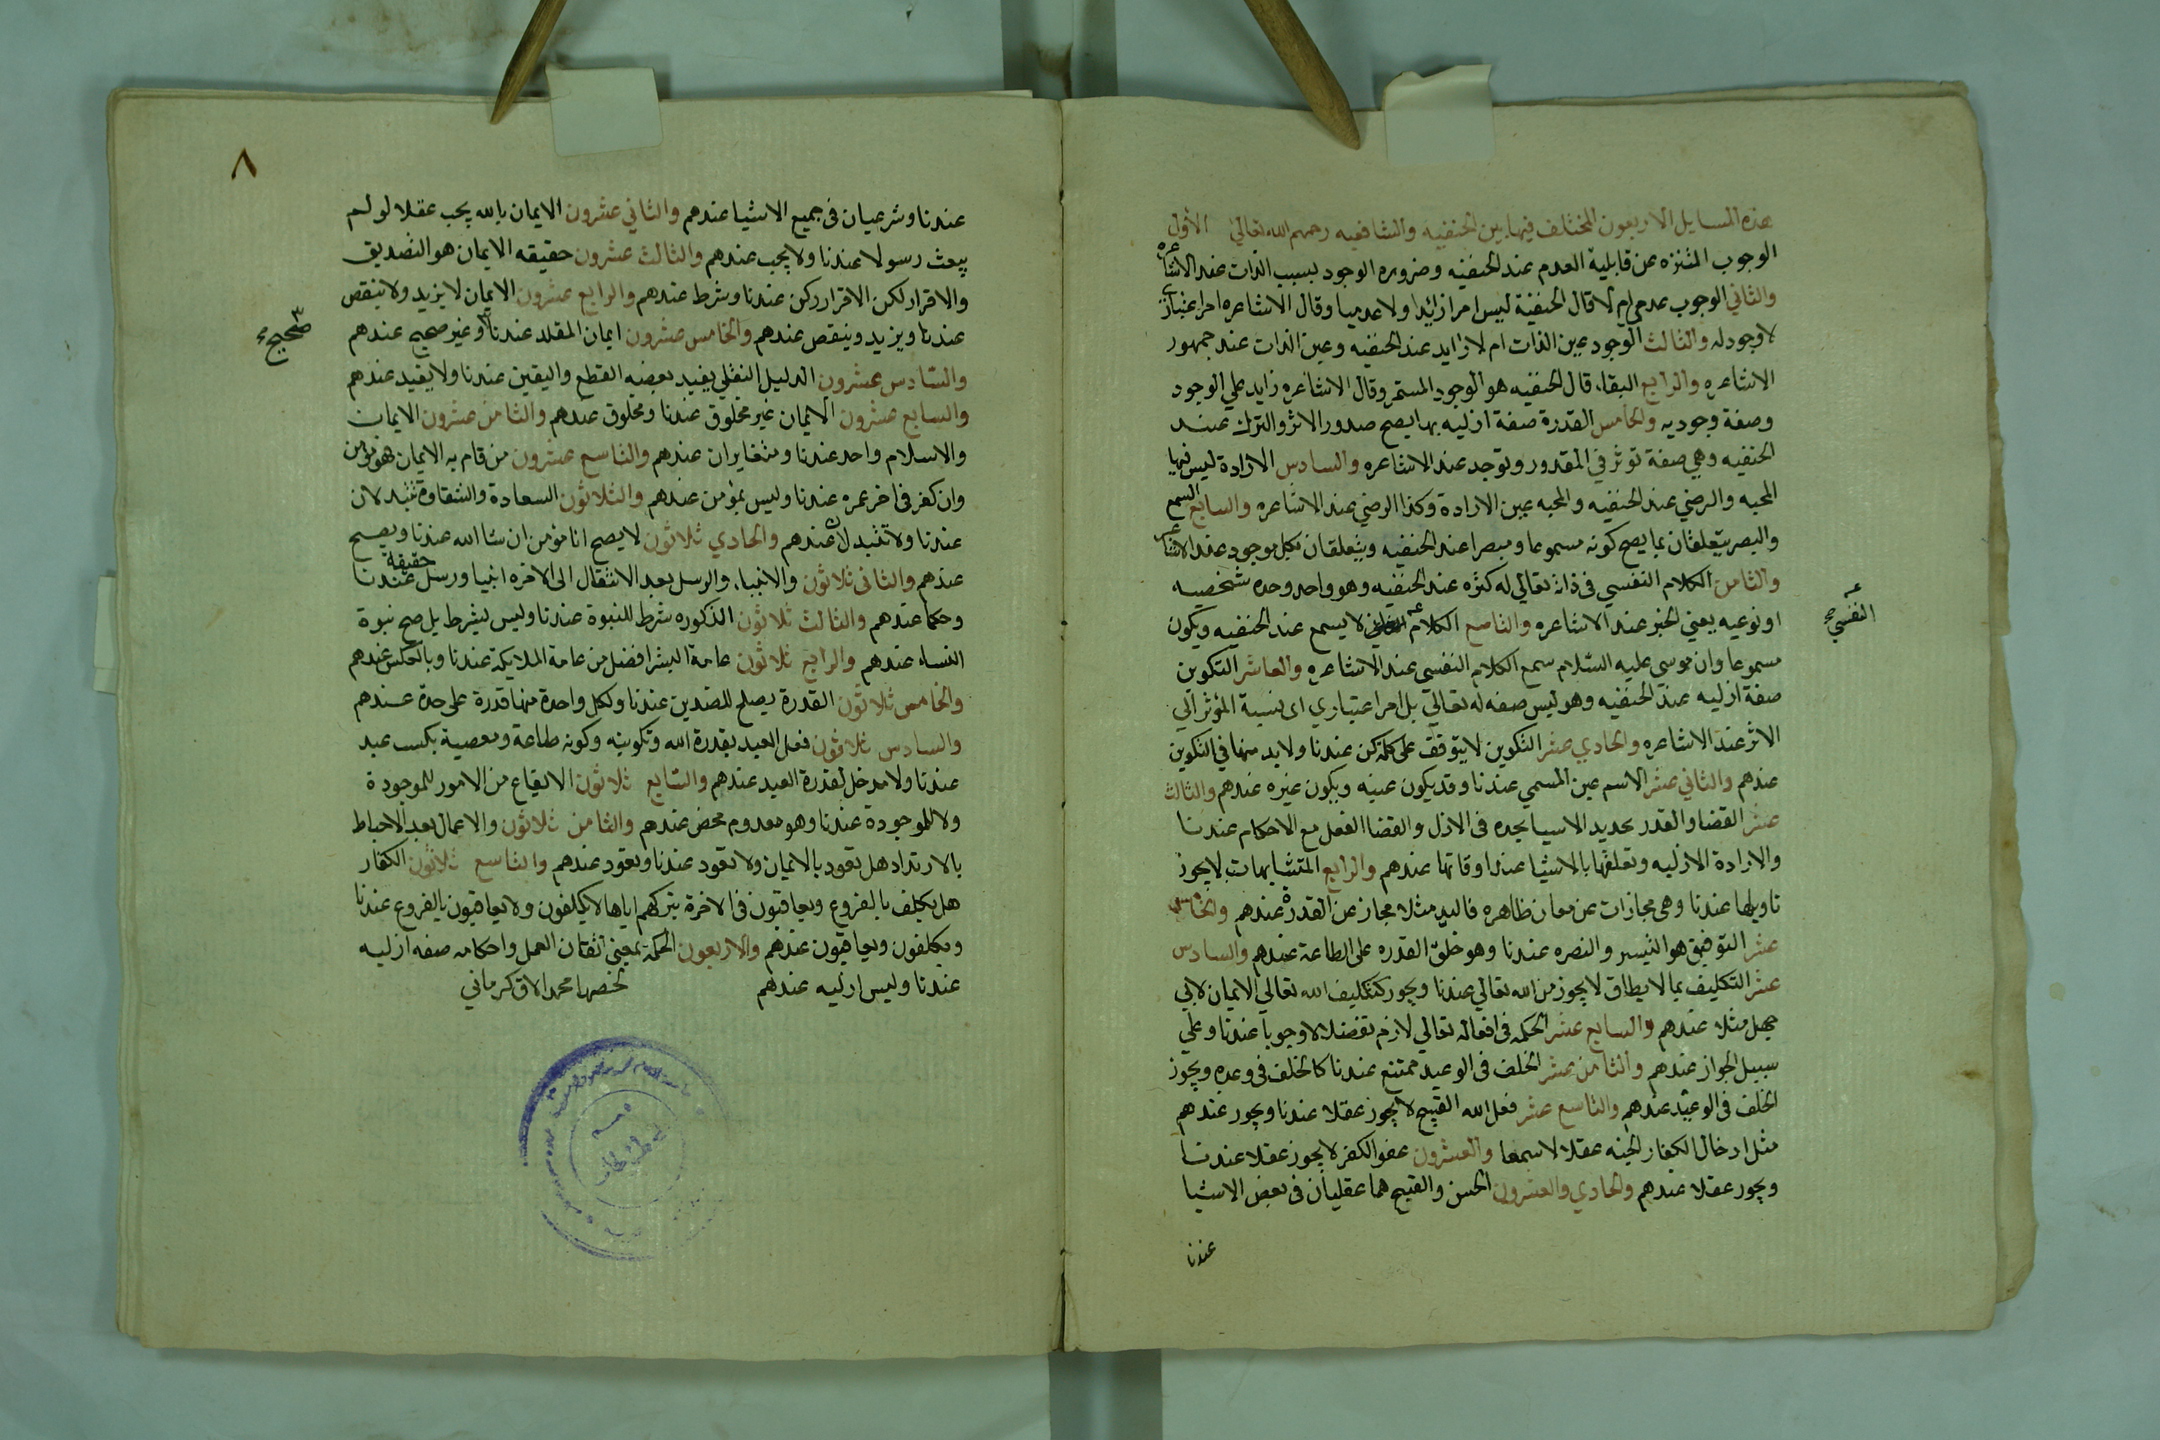 هذه المسايل الاربعون المختلف فيها بين الحنفيه والشافعيه رحمهم الله تعالى الأول
الوجوب المنزه عن قابلية العدم عند الحنفيه وضرورة الوجود بسبب الذات عند الاشاعره
والثاني الوجوب عدمي ام لا قال الحنفية ليس امرا زائدا ولا عدميا وقال الاشاعره امر اعتباري
لا وجود له والثالث الوجود عين الذات ام لا زايد عند الحنفيه وعين الذات عند جمهور
الاشاعره والرابع البقاء قال الحنفيه هو الوجود المستمر وقال الاشاعره زايد علي الوجود
وصفة وجوديه والخامس القدرة صفة ازليه بها يصح صدور الاثر والترك عند
الحنفيه وهي صفة توثر في المقدور وتوجد عند الاشاعره والسادس الارادة ليس فيها
المحبه والرضي عند الحنفيه والمحبه عين الارادة وكذا الرضي عند الاشاعره والسابع السمع
والبصر يتعلقان بما يصح كونه مسموعا ومبصرا عند الحنفيه ويتعلقان بكل موجود عند الاشاعره
والثامن الكلام النفسي في ذاته تعالي له كثره عند الحنفيه وهو واحد وحدة شخصيه
او نوعيه يعني الخبر عند الاشاعره والتاسع الكلام لا يسمع عند الحنفيه ويكون
النفسي صح
مسموعا وان موسي عليه السلام سمع الكلام النفسي عند الاشاعره والعاشر التكوين
صفة ازليه عند الحنفيه وهو ليس صفه له تعالي بل امر اعتباري اى بنسبة المؤثر الي
الاثر عند الاشاعره والحادي عشر التكوين لا يتوقف على كلمة كن عندنا ولا بد منها في التكوين
عندهم والثاني عشر الاسم عين المسمي عندنا وقد يكون عينه ويكون غيره عندهم والثالث
عشر القضا والقدر تحديد الاشيا بحده في الازل والقضا الفعل مع الاحكام عندنا
والارادة الازليه وتعلقها بالاشيا عند اوقاتها عندهم والرابع المتشابهات لا يجوز
تاويلها عندنا وهي مجازات عن معان ظاهره فاليد مثلا مجاز عن القدرة عندهم والخامس
عشر التوفيق هو التيسر والنصره عندنا وهو خلق القدره على الطاعة عندهم والسادس
عشر التكليف بما لا يطاق لا يجوز من الله تعالي عندنا ويجوز كتكليف الله تعالي الايمان لابي
جهل مثلا عندهم والسابع عشر الحكمه في افعاله تعالي لازم تفضلا لا وجوبا عندنا وعلي
سبيل الجواز عندهم والثامن عشر الخلف في الوعيد ممتنع عندنا كالخلف في وعده ويجوز
الخلف في الوعيد عندهم والتاسع عشر فعل الله القبيح لا يجوز عقلا عندنا ويجوز عندهم
مثل ادخال الكفار الجنه عقلا لا سمعا والعشرون عفو الكفر لا يجوز عقلا عندنا
ويجوز عقلا عندهم والحادي والعشرون الحسن والقبيح هما عقليان في بعض الاشيا
عندنا
٨
عندنا وشرعيان في جميع الاشيا عندهم والثاني عشرون الايمان بالله يجب عقلا لو لم
يبعث رسولا عندنا ولا يجب عندهم والثالث عشرون حقيقه الايمان هو التصديق
والاقرار لكن الاقرار ركن عندنا وشرط عندهم والرابع عشرون الايمان لا يزيد ولا ينقص
عندنا ويزيد وينقص عندهم والخامس عشرون ايمان المقلد عندنا وغير صحيح عندهم
صحيح
والسادس عشرون الدليل النقلي يفيد بعضه القطع واليقين عندنا ولا يفيد عندهم
والسابع عشرون الايمان غير مخلوق عندنا ومخلوق عندهم والثامن عشرون الايمان
والاسلام واحد عندنا ومتغايران عندهم والتاسع عشرون من قام به الايمان فهو مؤمن
وان كفر في اخر عمره عندنا وليس بمؤمن عندهم والثلاثون السعادة والشقاوة تتبدلان
عندنا ولا تتبدلان عندهم والحادي ثلاثون لا يصح انا مؤمن ان شا الله عندنا ويصح
عندهم والثاني ثلاثون والانبياء والرسل بعد الانتقال الى الاخره انبيا ورسل حقيقة عندنا
وحكما عندهم والثالث ثلاثون الذكوره شرط للنبوة عندنا وليس بشرط بل صح نبوة
النساء عندهم والرابع ثلاثون عامة البشر افضل من عامة الملايكة عندنا وبالعكس عندهم
والخامس ثلاثون القدرة يصلح للضدين عندنا ولكل واحدة منها قدرة على حدة عندهم
والسادس ثلاثون فعل العبد بقدرة الله وتكوينه وكونه طاعة ومعصية بكسب عبد
عندنا ولا مدخل لقدرة العبد عندهم والسابع ثلاثون الايقاع من الامور للموجودة
ولا للموجودة عندنا وهو معدوم محض عندهم والثامن ثلاثون والاعمال بعد الاحباط
بالارتداد هل تعود بالايمان ولا تعود عندنا وتعود عندهم والتاسع ثلاثون الكفار
هل يكلف بالفروع ويعاقبون في الاخرة بتركهم اياها لا يكلفون ولا يعاقبون بالفروع عندنا
ويكلفون ويعاقبون عندهم والاربعون الحكمة بمعنى اتقان العمل واحكامه صفه ازليه
عندنا وليس ازليه عندهم لخصها محمد الاق كرماني